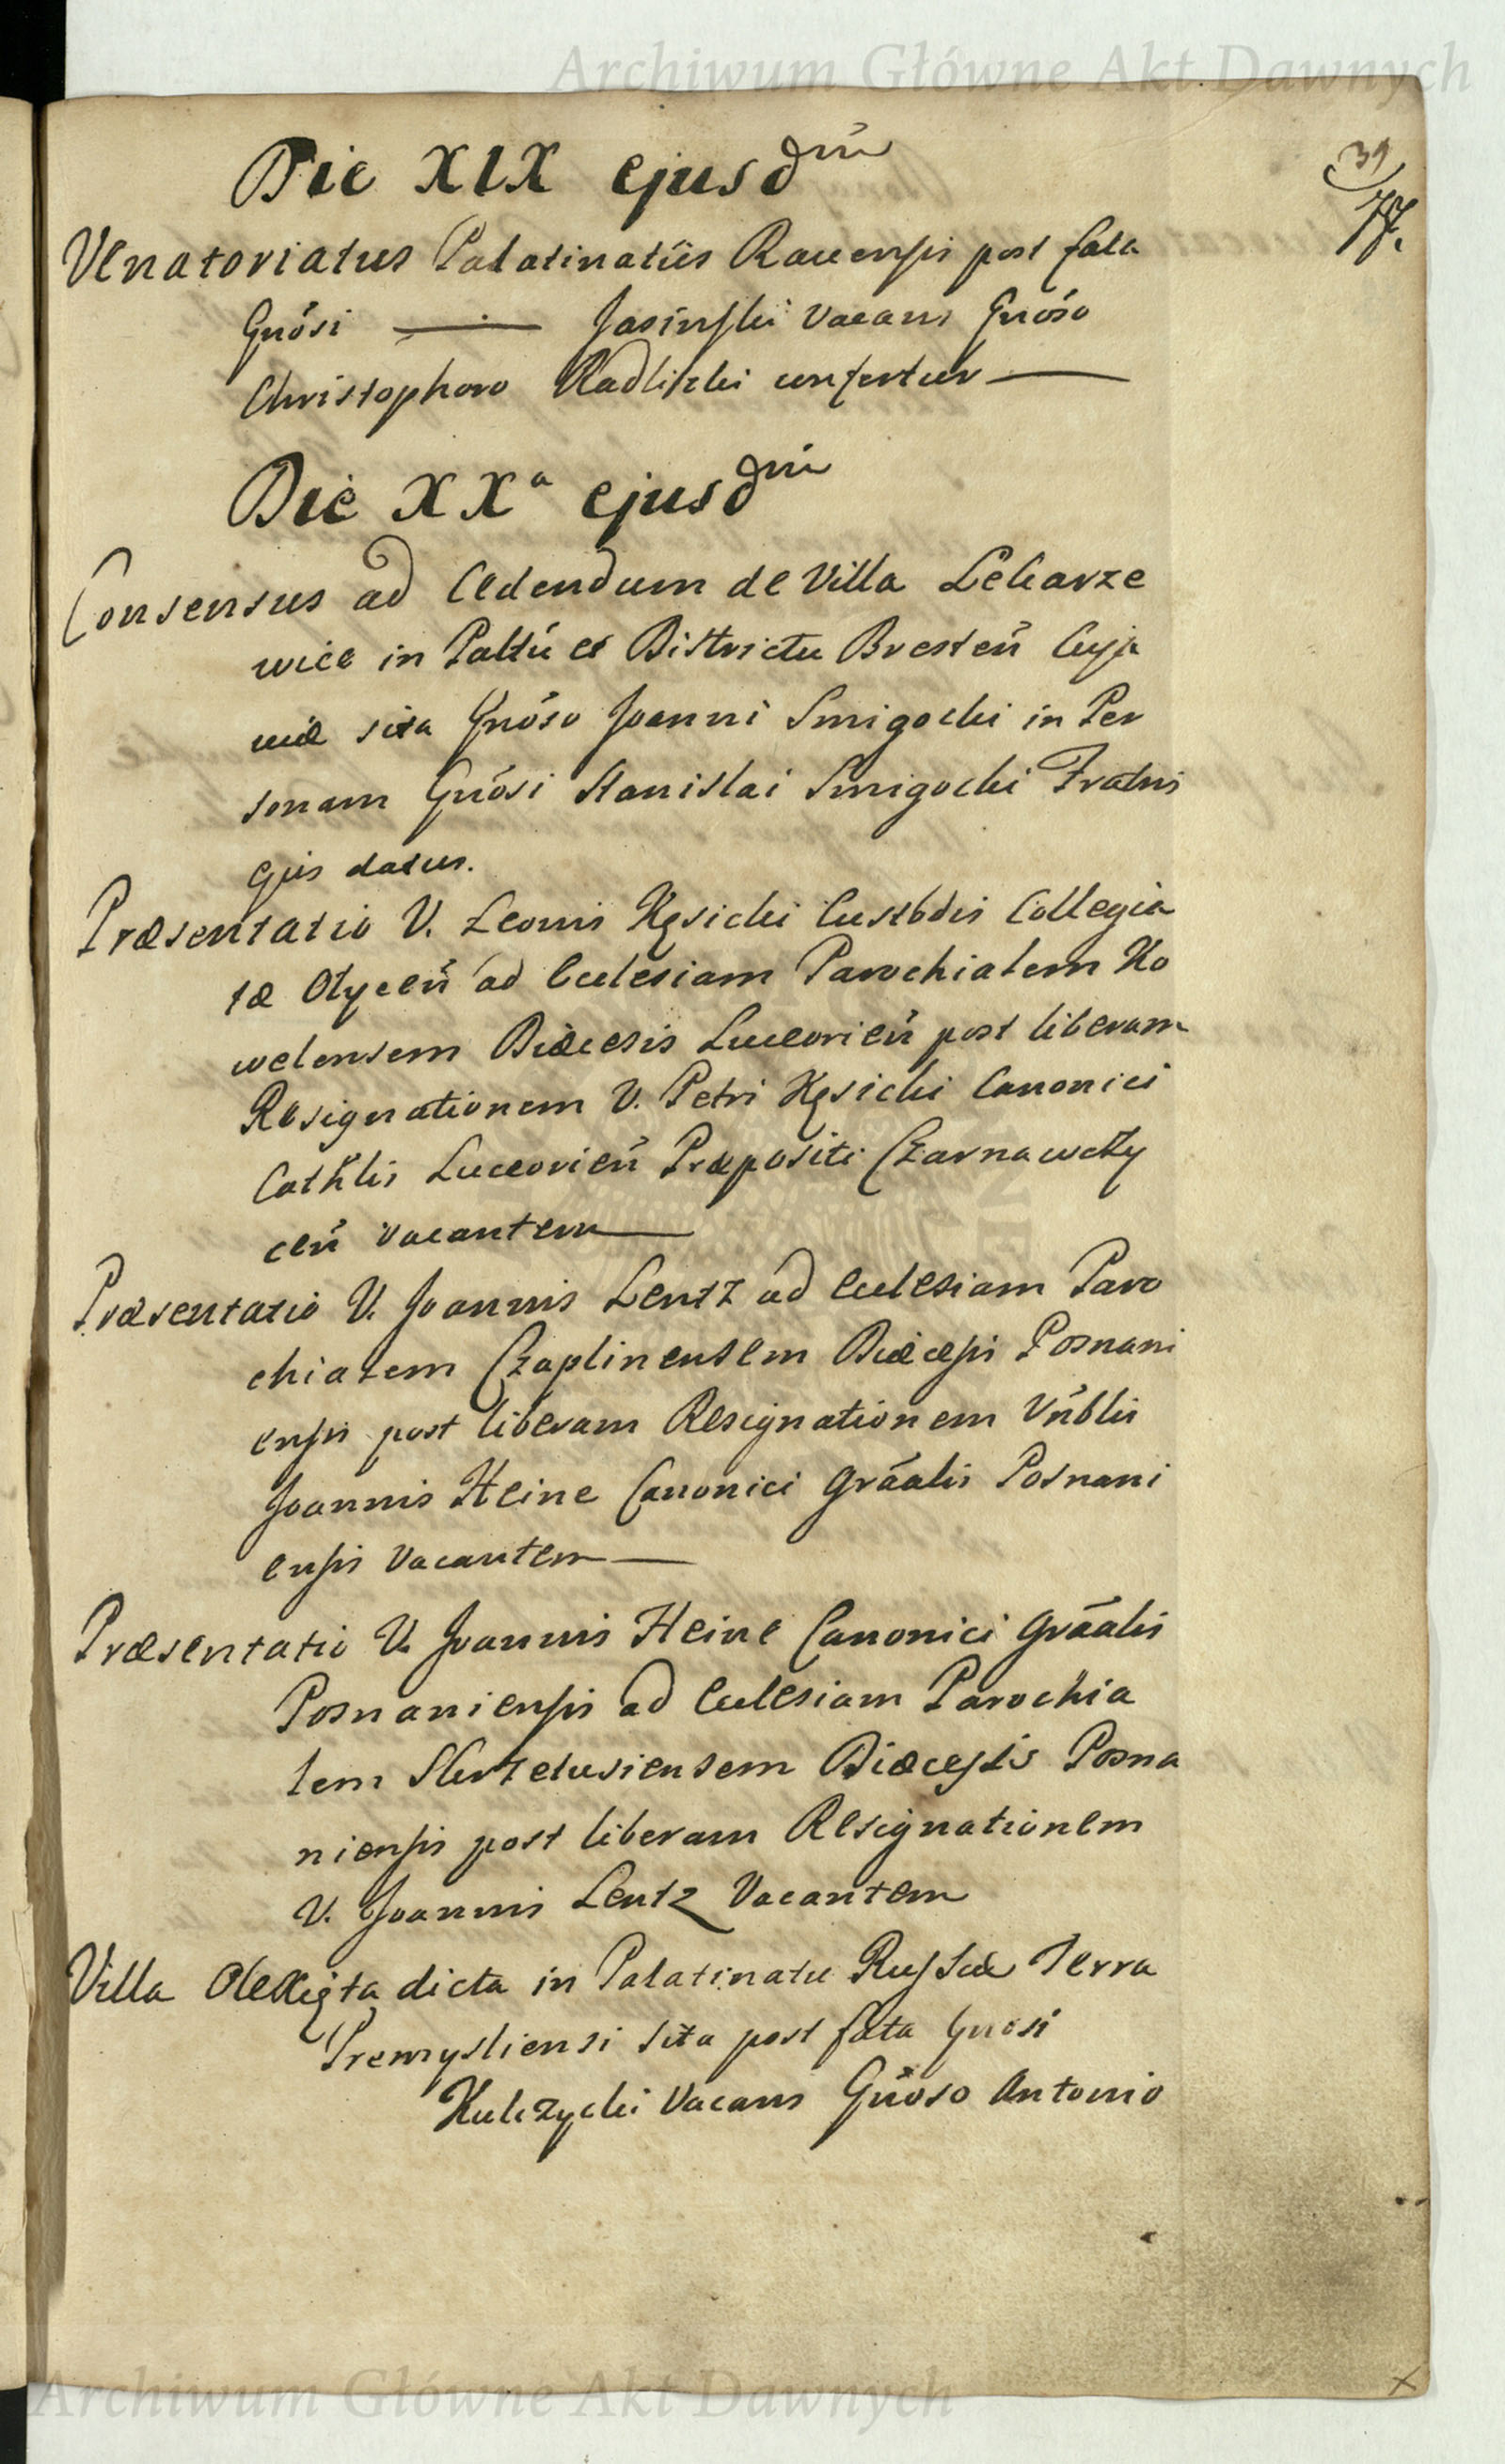 Archiwum Główne Akt Dawnych
39
77.
Die XIX ejusdm̃
Venatoriatus Palatinatûs Ravensis post fata
Gnõsi —— Jasinski vacans Gnõso
Christophoro Radlicki confertur —
Die XXa ejusdm̃
Consensus ad Cedendum de Villa Lekarze
wice in Paltũ et Districtu Bresteñ Cuja
viæ sita Gnõso Joanni Smigocki in Per
sonam Gnõsi Stanislai Smigocki Fratris
ejus datus.
Præsentatio V. Leonis Kęsicki Custodis Collegia
tæ Olyceñ ad Ecclesiam Parochialem Ko
welensem Diæcesis Luceorieñ post liberam
Resignationem V. Petri Kęsicki Canonici
Cathlis Luceorieñ Præpositi Czarnawczy
ceñ vacantem —
Præsentatio V. Joannis Lentz ad Ecclesiam Paro
chialem Czaplinensem Diæcesis Posnani
ensis post liberam Resignationem Vñblis
Joannis Heine Canonici Grãalis Posnani
ensis Vacantem —
Præsentatio V. Joannis Heine Canonici Grãalis
Posnaniensis ad Ecclesiam Parochia
lem Skrzetusiensem Diæcesis Posna
niensis post liberam Resignationem
V. Joannis Lentz Vacantem
Villa dicta in Palatinatu Russiæ Terra
Premysliensi sita post fata Gnosi
Kulczycki Vacans Gñoso Antonio
Archiwum Główne Akt Dawnych